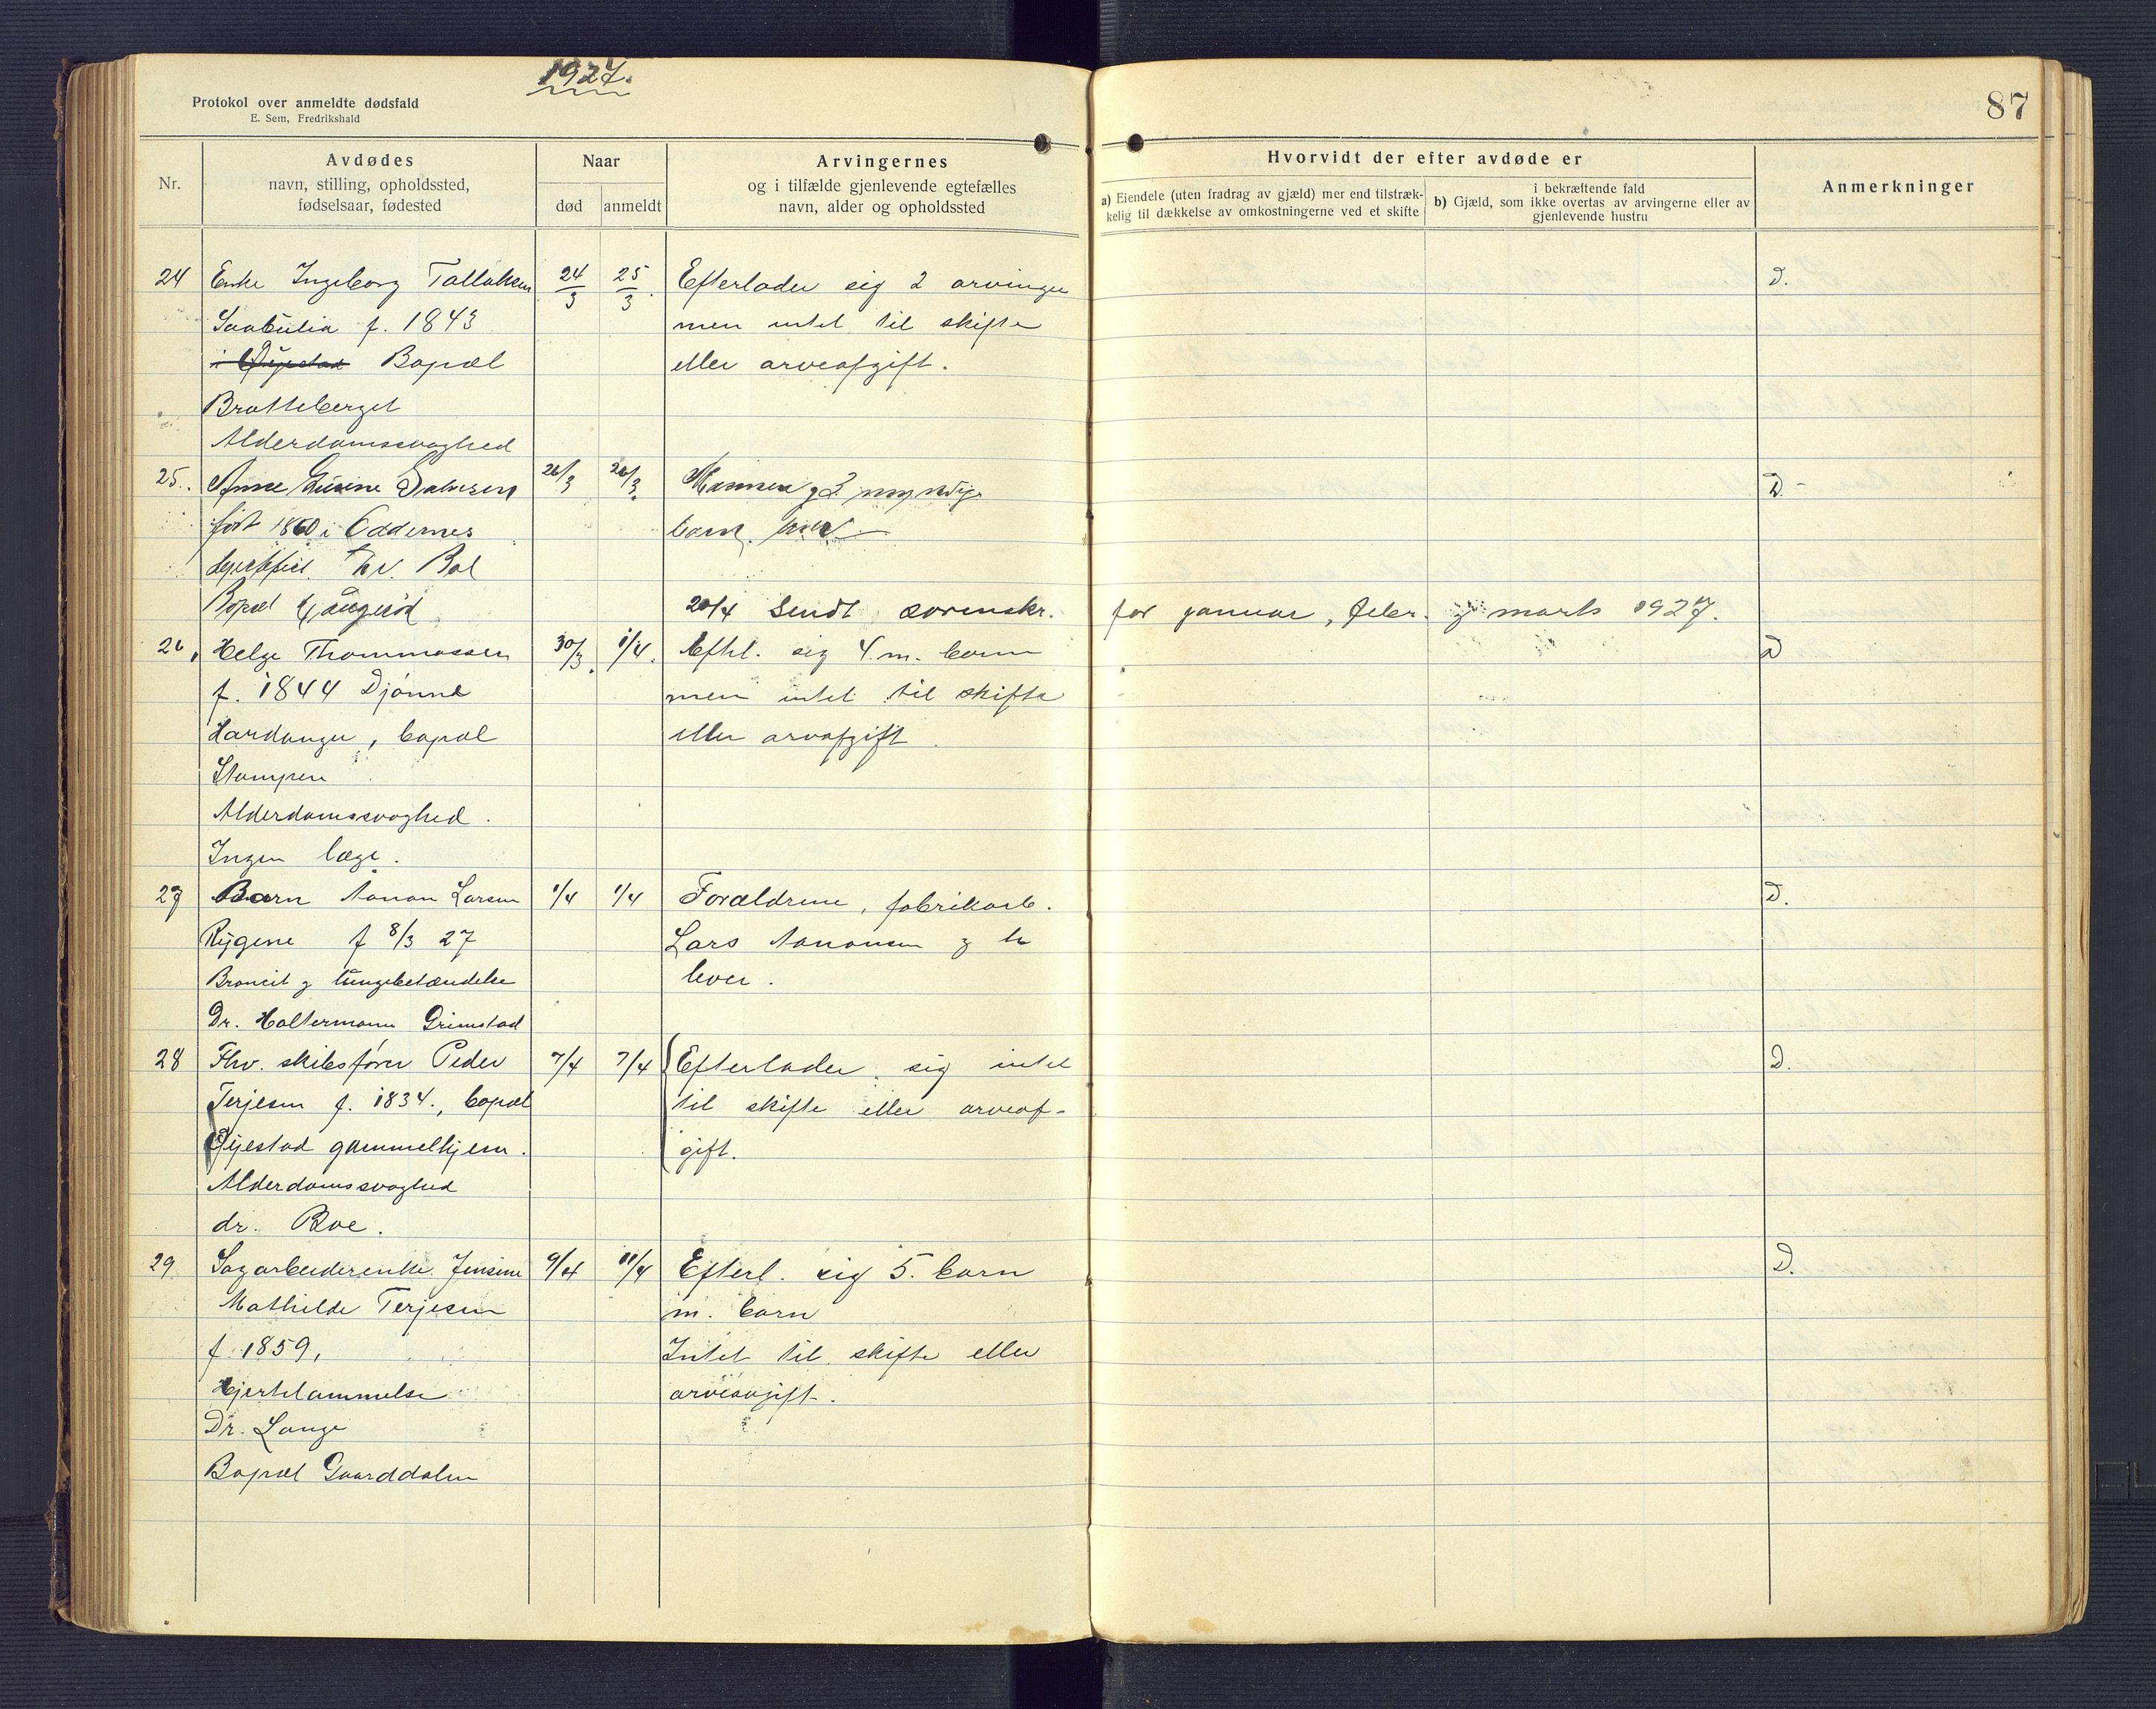 1927.
Protokol over anmeldte dødsfald
E. Sem, Fredrikshald
87
Nr.
Avdødes
navn, stilling, opholdssted,
fødselsaar, fødested
Naar
død
anmeldt
Arvingernes
og i tilfælde gjenlevende egtefælles
navn, alder og opholdssted
Hvorvidt der efter avdøde er
a) Eiendele (uten fradrag av gjæld) mer end tilstræk-
kelig til dækkelse av omkostningerne ved et skifte
i bekræftende fald
b) Gjæld, som ikke overtas av arvingerne eller av
gjenlevende hustru
Anmerkninger
24 Enke Ingeborg Tallaksen 24/3 25/3. Efterlader sig 2 arvinger D.
f. 1843 men intet til skifte
i Øyestad Bopæl eller arveafgift.
Bratteberget
Alderdomssvaghed
25. Anne Salvesen 26/3 26/3. Manden g 3 myndige D.-
født 1860 i Oddernes barn.
Bopæl
20/4 Sendt sorenskr. for januar, febr. g marts 1927.
26, Helge Thommassen 30/3. 1/4. Efterl. sig 4. m. barn D
f. 1844 Djønne men intet til skifte
Hardanger, bopæl eller arvafgift.
Stampen
Alderdomssvaghed.
Ingen læge.
27 Barn Aanon Larsen 1/4 1/4 Forældrene, fabrikarb. D.
Rygene f 8/3 27 Lars Aanonsen g h
Broncit g lungebetændelse lever.
Dr. Holtermann Grimstad
28 Fhv. skibsfører Peder 7/4 7/4 Efterlader sig intet D.
Terjesen f. 1834., bopæl til skifte eller arveaf-
Øyestad gammelhjem. gift.
Alderdomssvaghed
dr. Boe.
29 Sagarbeiderenke Jensine 9/4 11/4 Efterl. sig 5. barn D.
Mathilde Terjesen m. barn
f. 1859, Intet til skifte eller
Hjertelammelse arveavgift.
Dr. Lange
Bopæl Gaarddalen